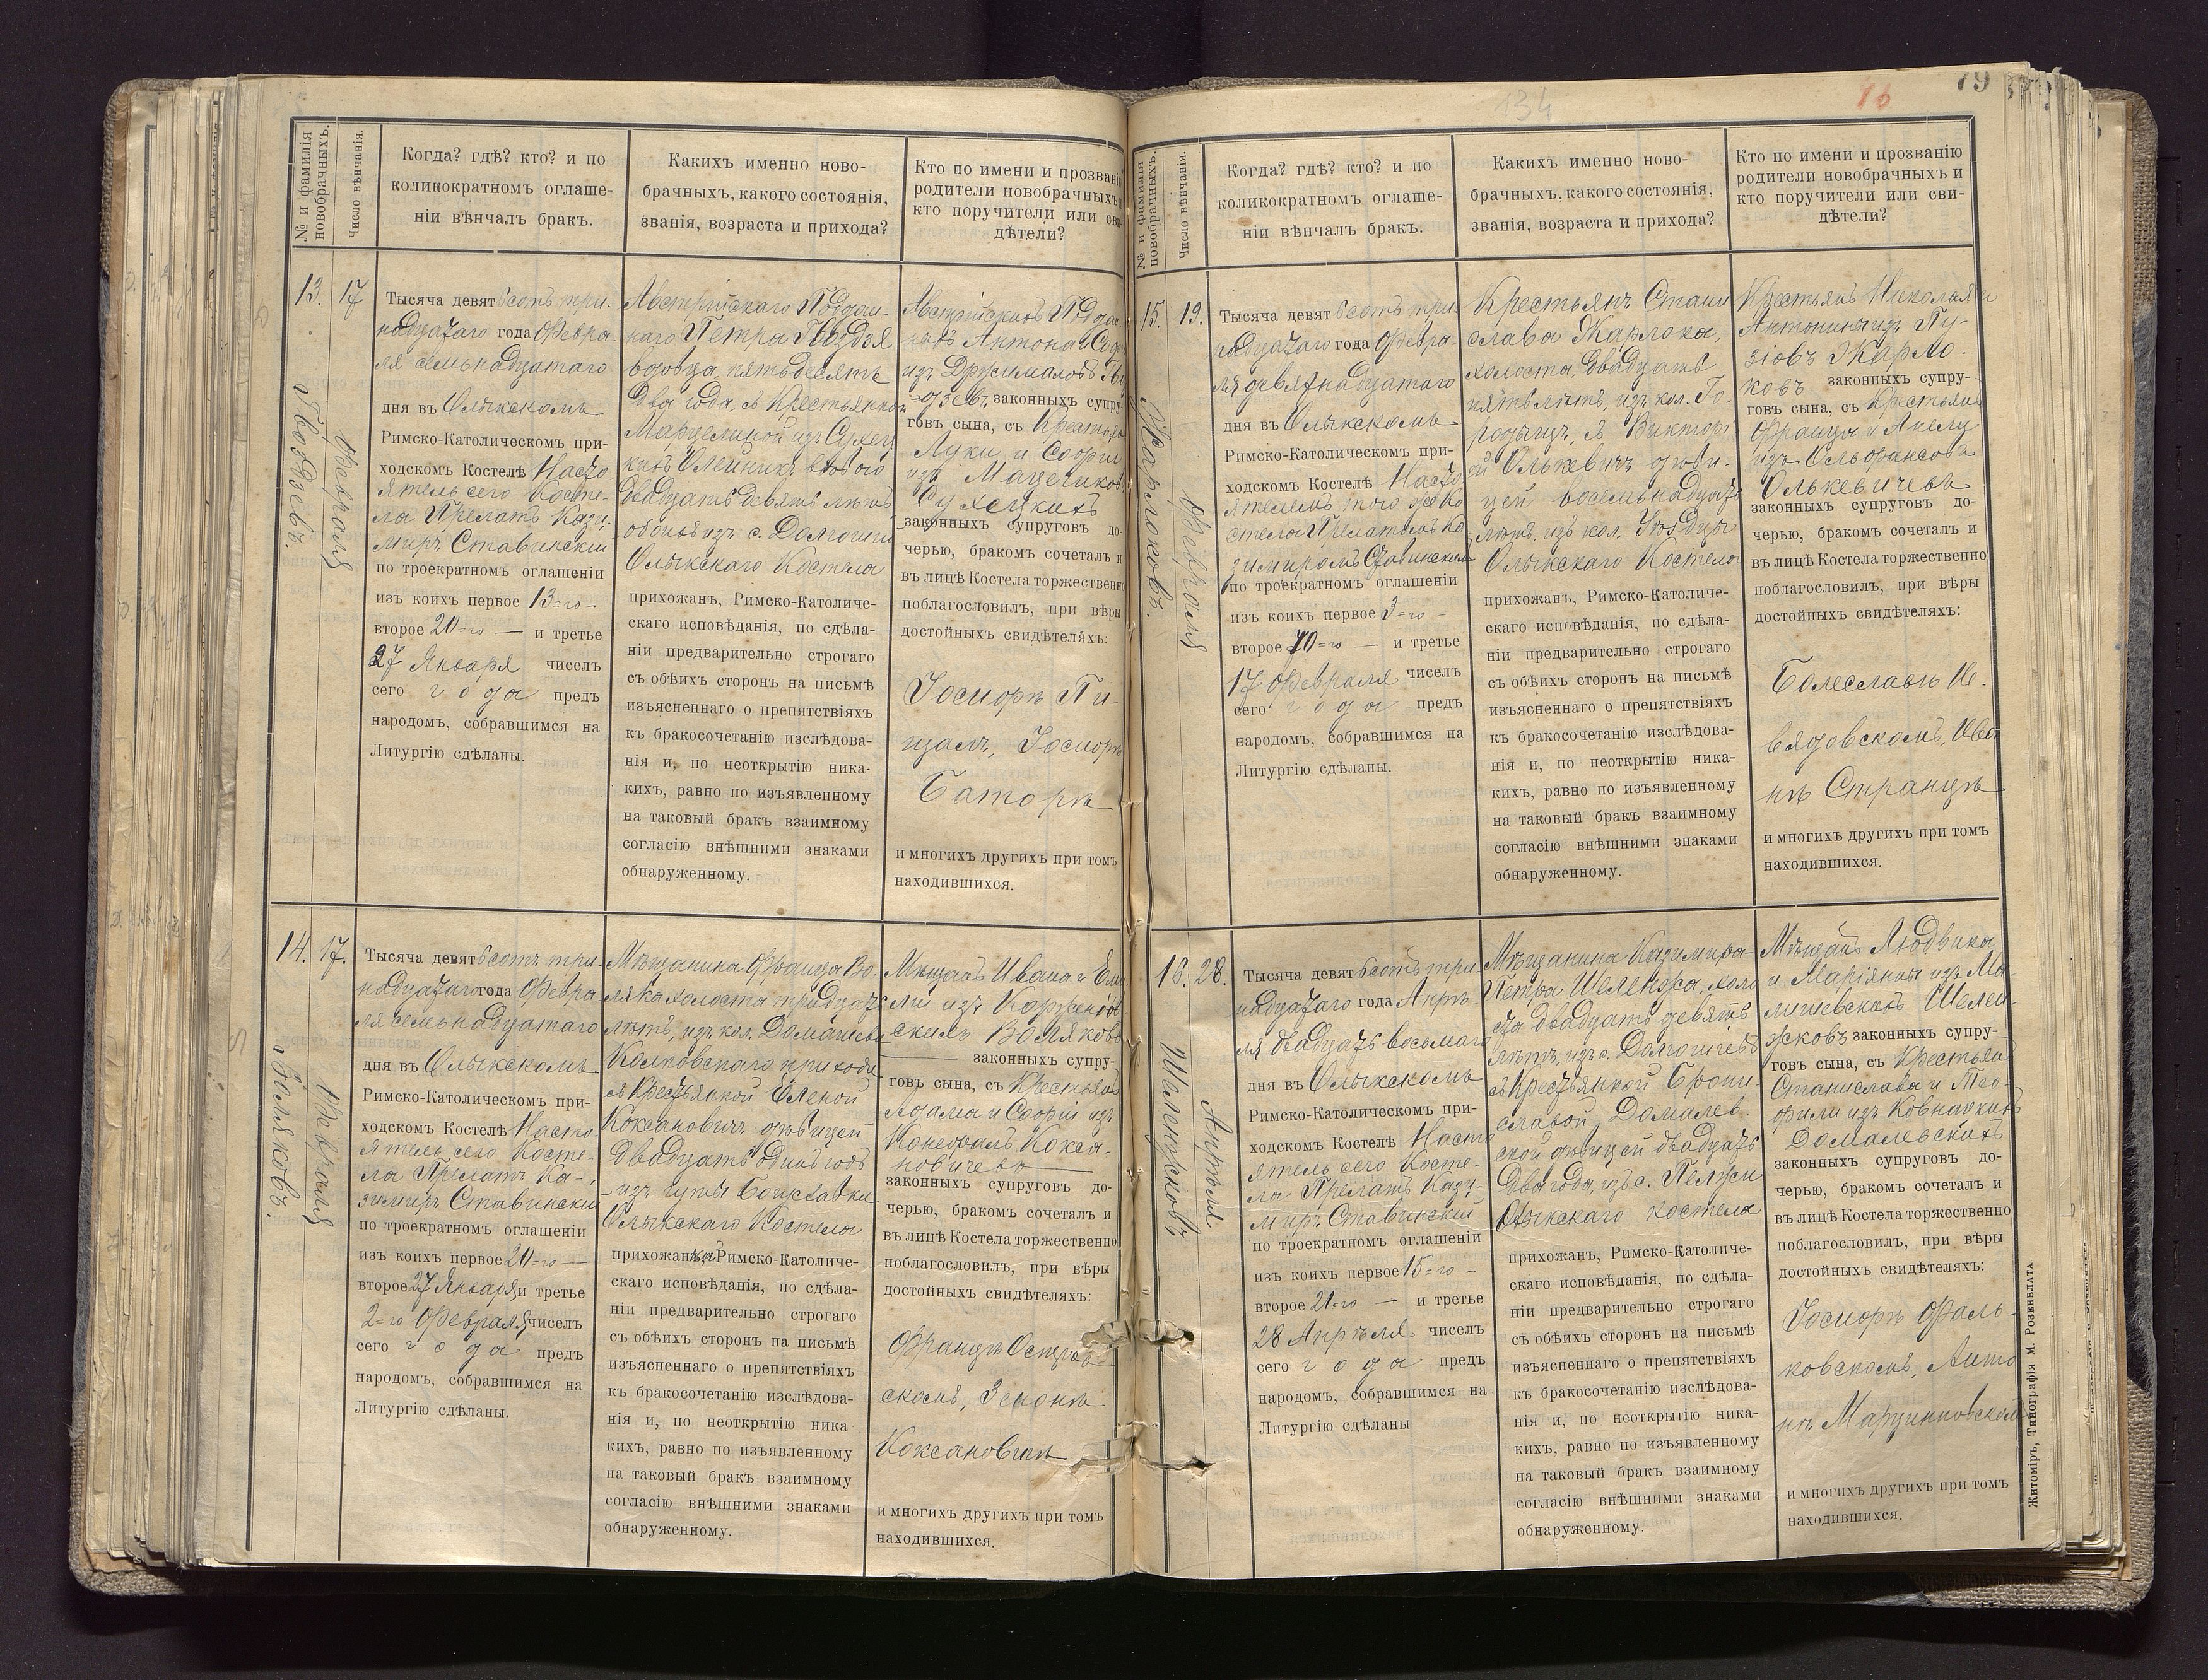 134
16
79
№ и фамилія
новобрачныхъ.
Число вѣнчанія.
Когда? гдѣ? кто? и по
коликократномъ оглаше-
ніи вѣнчалъ бракъ.
Какихъ именно ново-
брачныхъ, какого состоянія,
званія, возраста и прихода?
Кто по имени и прозванію
родители новобрачныхъ и
кто поручители или сви-
дѣтели?
13.
Гвоздзевъ.
17
Февраля
Тысяча девятьсотъ три-
надцатаго года Февра-
ля семьнадцатаго
дня въ Олыкскомъ
Римско-Католическомъ при-
ходскомъ Костелѣ Насто-
ятель сего Косте-
ла Прелатъ Кази-
миръ Ставинскій
по троекратномъ оглашеніи
изъ коихъ первое 13=го
второе 20=го — и третье
27 Января чиселъ
сего года предъ
народомъ, собравшимся на
Литургію сдѣланы.
Австрійскаго Поддан-
наго Петра Гвоздзя
вдовца, пятьдесятъ
два года, съ Крестьянкой
Марцелиной изъ Сухец-
кихъ Олейникъ вдовой
двадцать девять лѣтъ
обоихъ изъ с. Долгошіи
Олыкскаго Костела
прихожанъ, Римско-Католиче-
скаго исповѣданія, по сдѣла-
ніи предварительно строгаго
съ обѣихъ сторонъ на письмѣ
изъясненнаго о препятствіяхъ
къ бракосочетанію изслѣдова-
нія и, по неоткрытію ника-
кихъ, равно по изъявленному
на таковый бракъ взаимному
согласію внѣшними знаками
обнаруженному.
Австрійскихъ Поддан-
ныхъ Антона и Софіи
изъ Држималовъ Гво-
здзевъ, законныхъ супру-
говъ сына, съ Крестьянъ
Луки и Софіи
изъ Мацеликовъ
Сухецкихъ
законныхъ супруговъ до-
черью, бракомъ сочеталъ и
въ лицѣ Костела торжественно
поблагословилъ, при вѣры
достойныхъ свидѣтеляхъ:
Іосифѣ Пи-
щалѣ, Іосифѣ
Баторѣ
и многихъ другихъ при томъ
находившихся.
14.
Воляковъ.
17.
Февраля
Тысяча девятьсотъ три-
надцатаго года Февра-
ля семьнадцатаго
дня въ Олыкскомъ
Римско-Католическомъ при-
ходскомъ Костелѣ Насто-
ятель сего Косте-
ла Прелатъ Ка-
зимиръ Ставинскій
по троекратномъ оглашеніи
изъ коихъ первое 20=го
второе 27 Января и третье
2=го Февраля чиселъ
сего года предъ
народомъ, собравшимся на
Литургію сдѣланы.
Мѣщанина Франца Во-
ляка холоста тридцать
лѣтъ, изъ кол.
Колковскаго прихода
съ Крестьянкой Еленой
Коксановичъ дѣвицей
двадцать одинъ годъ
изъ
Олыкскаго Костела
прихожанкой Римско-Католиче-
скаго исповѣданія, по сдѣла-
ніи предварительно строгаго
съ обѣихъ сторонъ на письмѣ
изъясненнаго о препятствіяхъ
къ бракосочетанію изслѣдова-
нія и, по неоткрытію ника
кихъ, равно по изъявленному
на таковый бракъ взаимному
согласію внѣшними знаками
обнаруженному.
Мѣщанъ Ивана и Еми-
ліи изъ Коржнёв-
скихъ Воляковъ
законныхъ супру-
говъ сына, съ Крестьянъ
Адама и Софіи изъ
Конефалъ Кокса-
новичевъ
законныхъ супруговъ до-
черью, бракомъ сочеталъ и
въ лицѣ Костела торжественно
поблагословилъ, при вѣры
достойныхъ свидѣтеляхъ:
Францѣ Островскомъ, Зенонѣ
Коксановичѣ
и многихъ другихъ при томъ
находившихся.
№ и фамилія
новобрачныхъ.
Число вѣнчанія.
Когда? гдѣ? кто? и по
коликократномъ оглаше-
ніи вѣнчалъ бракъ.
Какихъ именно ново-
брачныхъ, какого состоянія,
званія, возраста и прихода?
Кто по имени и прозванію
родители новобрачныхъ и
кто поручители или сви-
дѣтели?
15.
Жарлоковъ.
19.
Февраля
Тысяча девятьсотъ три-
надцатаго года Февра-
ля девятнадцатаго
дня въ Олыкскомъ
Римско-Католическомъ при-
ходскомъ Костелѣ Насто-
ятелемъ того же Ко-
стела Прелатомъ Ка-
зимиромъ Ставинскимъ
по троекратномъ оглашеніи
изъ коихъ первое 3=го —
второе 10=го — и третье
17 Февраля чиселъ
сего года предъ
народомъ, собравшимся на
Литургію сдѣланы.
Крестьянъ Стани-
слава Жарлока,
холоста, двадцать
пять лѣтъ, изъ кол. Го-
родищъ, съ Викторі-
ей Олькевичъ дѣви-
цей восемьнадцать
лѣтъ, изъ кол.
Олыкскаго Костела
прихожанъ, Римско-Католиче-
скаго исповѣданія, по сдѣла-
ніи предварительно строгаго
съ обѣихъ сторонъ на письмѣ
изъясненнаго о препятствіяхъ
къ бракосочетанію изслѣдова-
нія и, по неоткрытію ника-
кихъ, равно по изъявленному
на таковый бракъ взаимному
согласію внѣшними знаками
обнаруженному.
Крестьянъ Николая и
Антонины изъ Пу-
зіовъ Жарло-
ковъ законныхъ супру-
говъ сына, съ Крестьянъ
Франца и Анелы
изъ
Олькевичевъ
законныхъ супруговъ до-
черью, бракомъ сочеталъ и
въ лицѣ Костела торжественно
поблагословилъ, при вѣры
достойныхъ свидѣтеляхъ:
Болеславѣ Не-
вядовскомъ, Ива-
нѣ Странцѣ
и многихъ другихъ при томъ
находившихся.
16.
Шеленжковъ
28.
Апрѣля
Тысяча девятьсотъ три-
надцатаго года Апрѣ-
ля двадцать восьмаго
дня въ Олыкскомъ
Римско-Католическомъ при-
ходскомъ Костелѣ Насто
ятель сего Косте-
ла Прелатъ Кази-
миръ Ставинскій
по троекратномъ оглашеніи
изъ коихъ первое 15=го —
второе 21=го — и третье
28 Апрѣля чиселъ
сего года предъ
народомъ, собравшимся на
Литургію сдѣланы
Мѣщанина Казимира
Петра Шеленжка, холо
ста двадцать девять
лѣтъ, изъ с. Долгошіевъ
съ Крестьянкой Брони-
славой Домалев-
ской дѣвицей двадцать
два года, изъ с. Пелжи
Олыкскаго костела
прихожанъ, Римско-Католиче-
скаго исповѣданія, по сдѣла-
ніи предварительно строгаго
съ обѣихъ сторонъ на письмѣ
изъясненнаго о препятствіяхъ
къ бракосочетанію изслѣдова-
нія и, по неоткрытію ника-
кихъ, равно по изъявленному
на таковый бракъ взаимному
согласію внѣшними знаками
обнаруженному.
Мѣщанъ Людвика
и Маріянны изъ Ма
лишевскихъ Шелен-
жковъ законныхъ супру-
говъ сына, съ Крестьянъ
Станислава и Тео-
фили изъ Ковнацкихъ
Домалевскихъ
законныхъ супруговъ до-
черью, бракомъ сочеталъ и
въ лицѣ Костела торжественно
поблагословилъ, при вѣры
достойныхъ свидѣтеляхъ:
Іосифѣ Фаль-
ковскомъ, Анто
нѣ Марцинковскомъ
и многихъ другихъ при томъ
находившихся.
Житоміръ, Типографія М. Розенблата